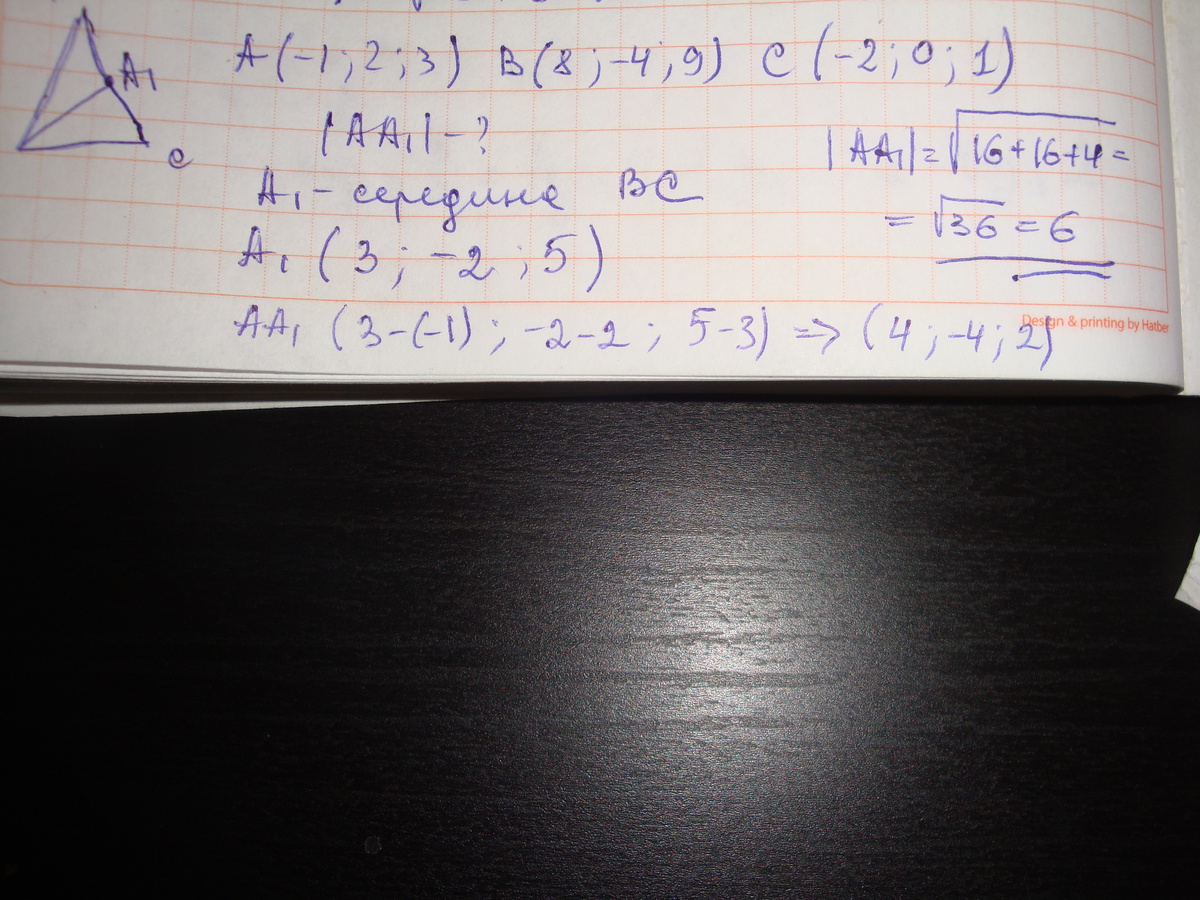 A (-1; 2; 3) B (8; -4; 9) C (-2; 0; 1)
A₁
c
|AA₁| - ?
|AA₁| = √16+16+4 =
A₁ - середина BC
= √36 = 6
A₁ (3; -2; 5)
AA₁ (3-(-1); -2-2; 5-3) => (4; -4; 2)
Design & printing by Hatber